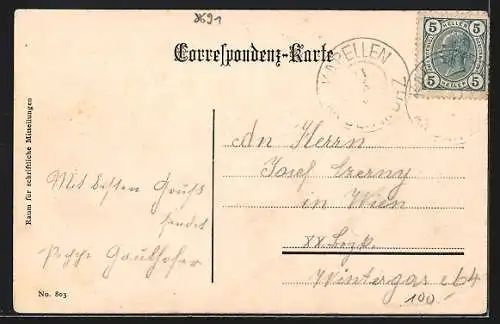 8691
Correspondenz-Karte
KAPELLEN
5 HELLER 5
5 HELLER 5
Raum für schriftliche Mitteilungen
An Herrn
Josef Czerny
in Wien
XX. Bezk.
Wintergasse 64
100.-
Mit besten Gruß
sendet
Gaulhofer
No. 803